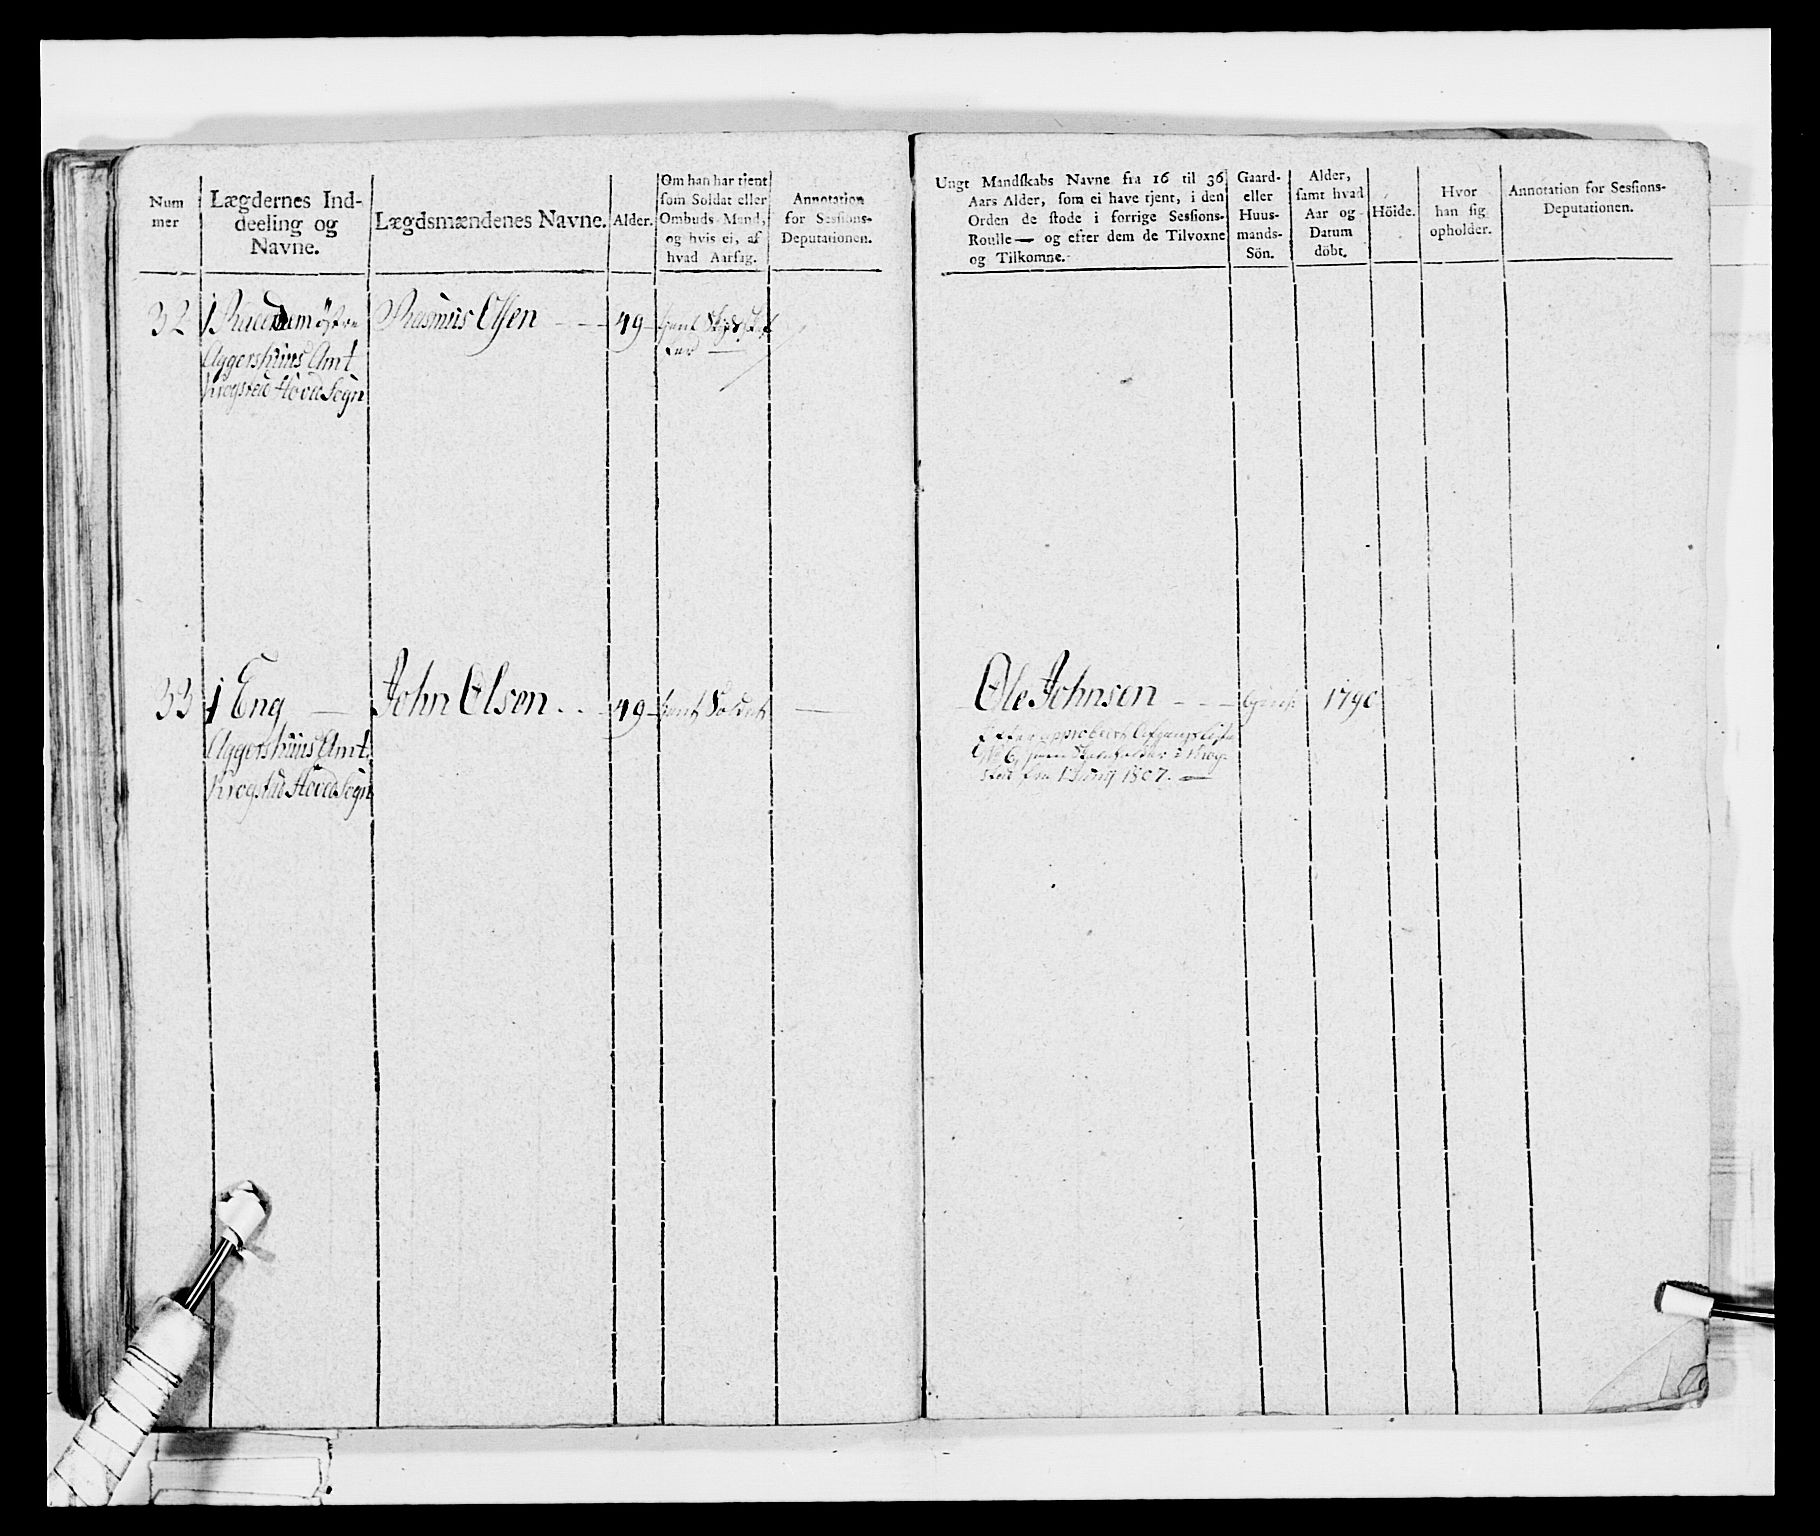 Num
mer
Lægdernes Ind-
deeling og
Navne.
Lægdsmændenes Navne.
Alder.
Om han har tjent
som Soldat eller
Ombuds-Mand,
og hvis ei, af
hvad Aarsag.
Annotation
for Sessions-
Deputationen.
32
1 østre
Aggershuus Amt
Krogsted Hoved Sogn
Rasmus Olsen
49
tient
33
1 Eng
Aggershuus Amt.
Krogsted Hoved Sogn
John Olsen
49
tient Soldat
Ungt Mandskabs Navne fra 16 til 36
Aars Alder, som ei have tjent, i den
Orden de stode i forrige Sessions-
Roulle— og efter dem de Tilvoxne
og Tilkomne.
Gaard-
eller
Huus-
mands-
Sön.
Alder,
samt hvad
Aar og
Datum
döbt.
Höide.
Hvor
han sig
opholder.
Annotation for Sessions-
Deputationen.
Ole Johnsen
1790
Efter approberet Afgangsliste
i Krog-
sted fra 1807.